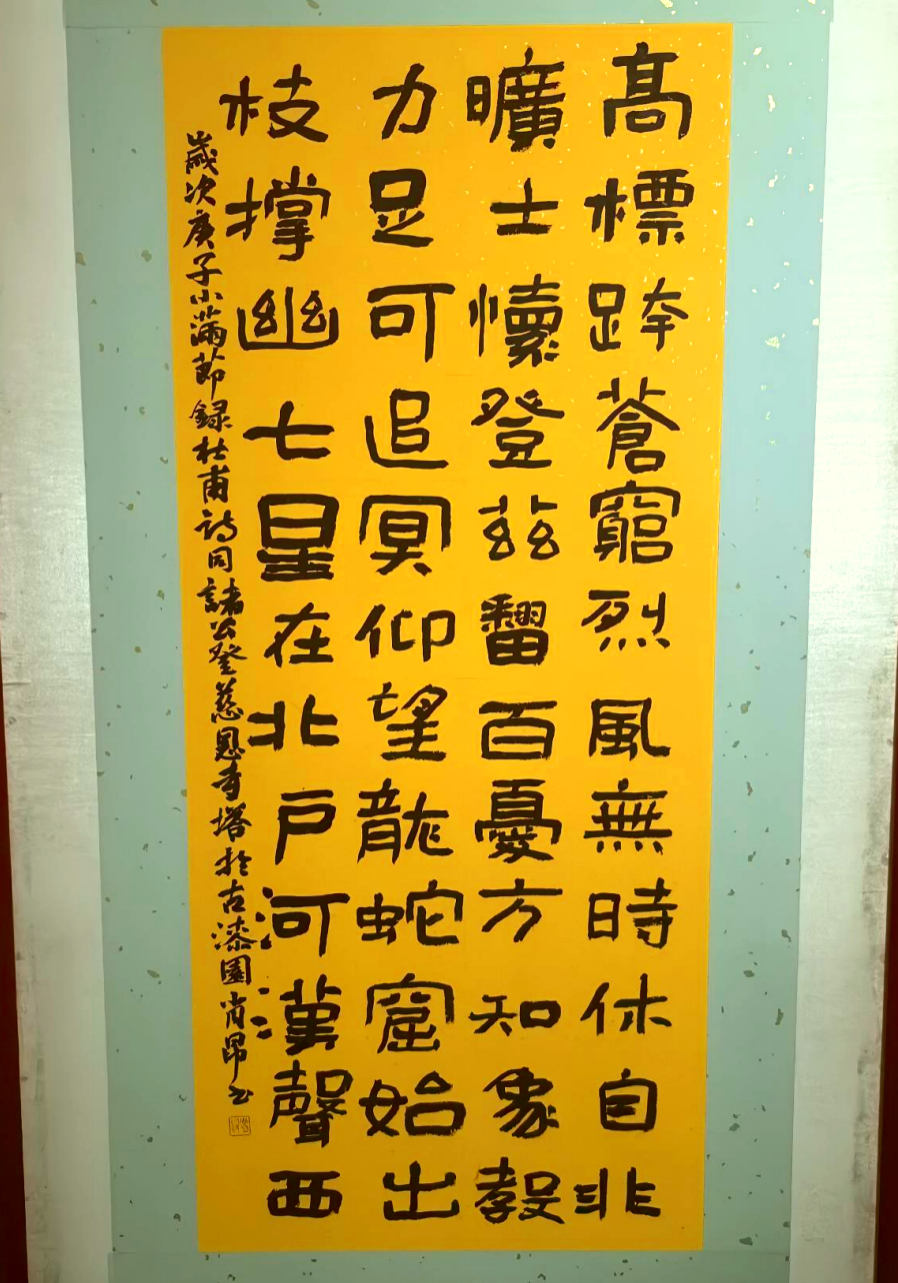 高標跨蒼窮烈風無時休自非
曠士懷登茲翻百憂方知象教
力足可追冥仰望龍蛇窟始出
枝撐幽七星在北戶河漢聲西
歲次庚子小滿節録杜甫詩同諸公登慈恩寺塔於古漆園肖昂书